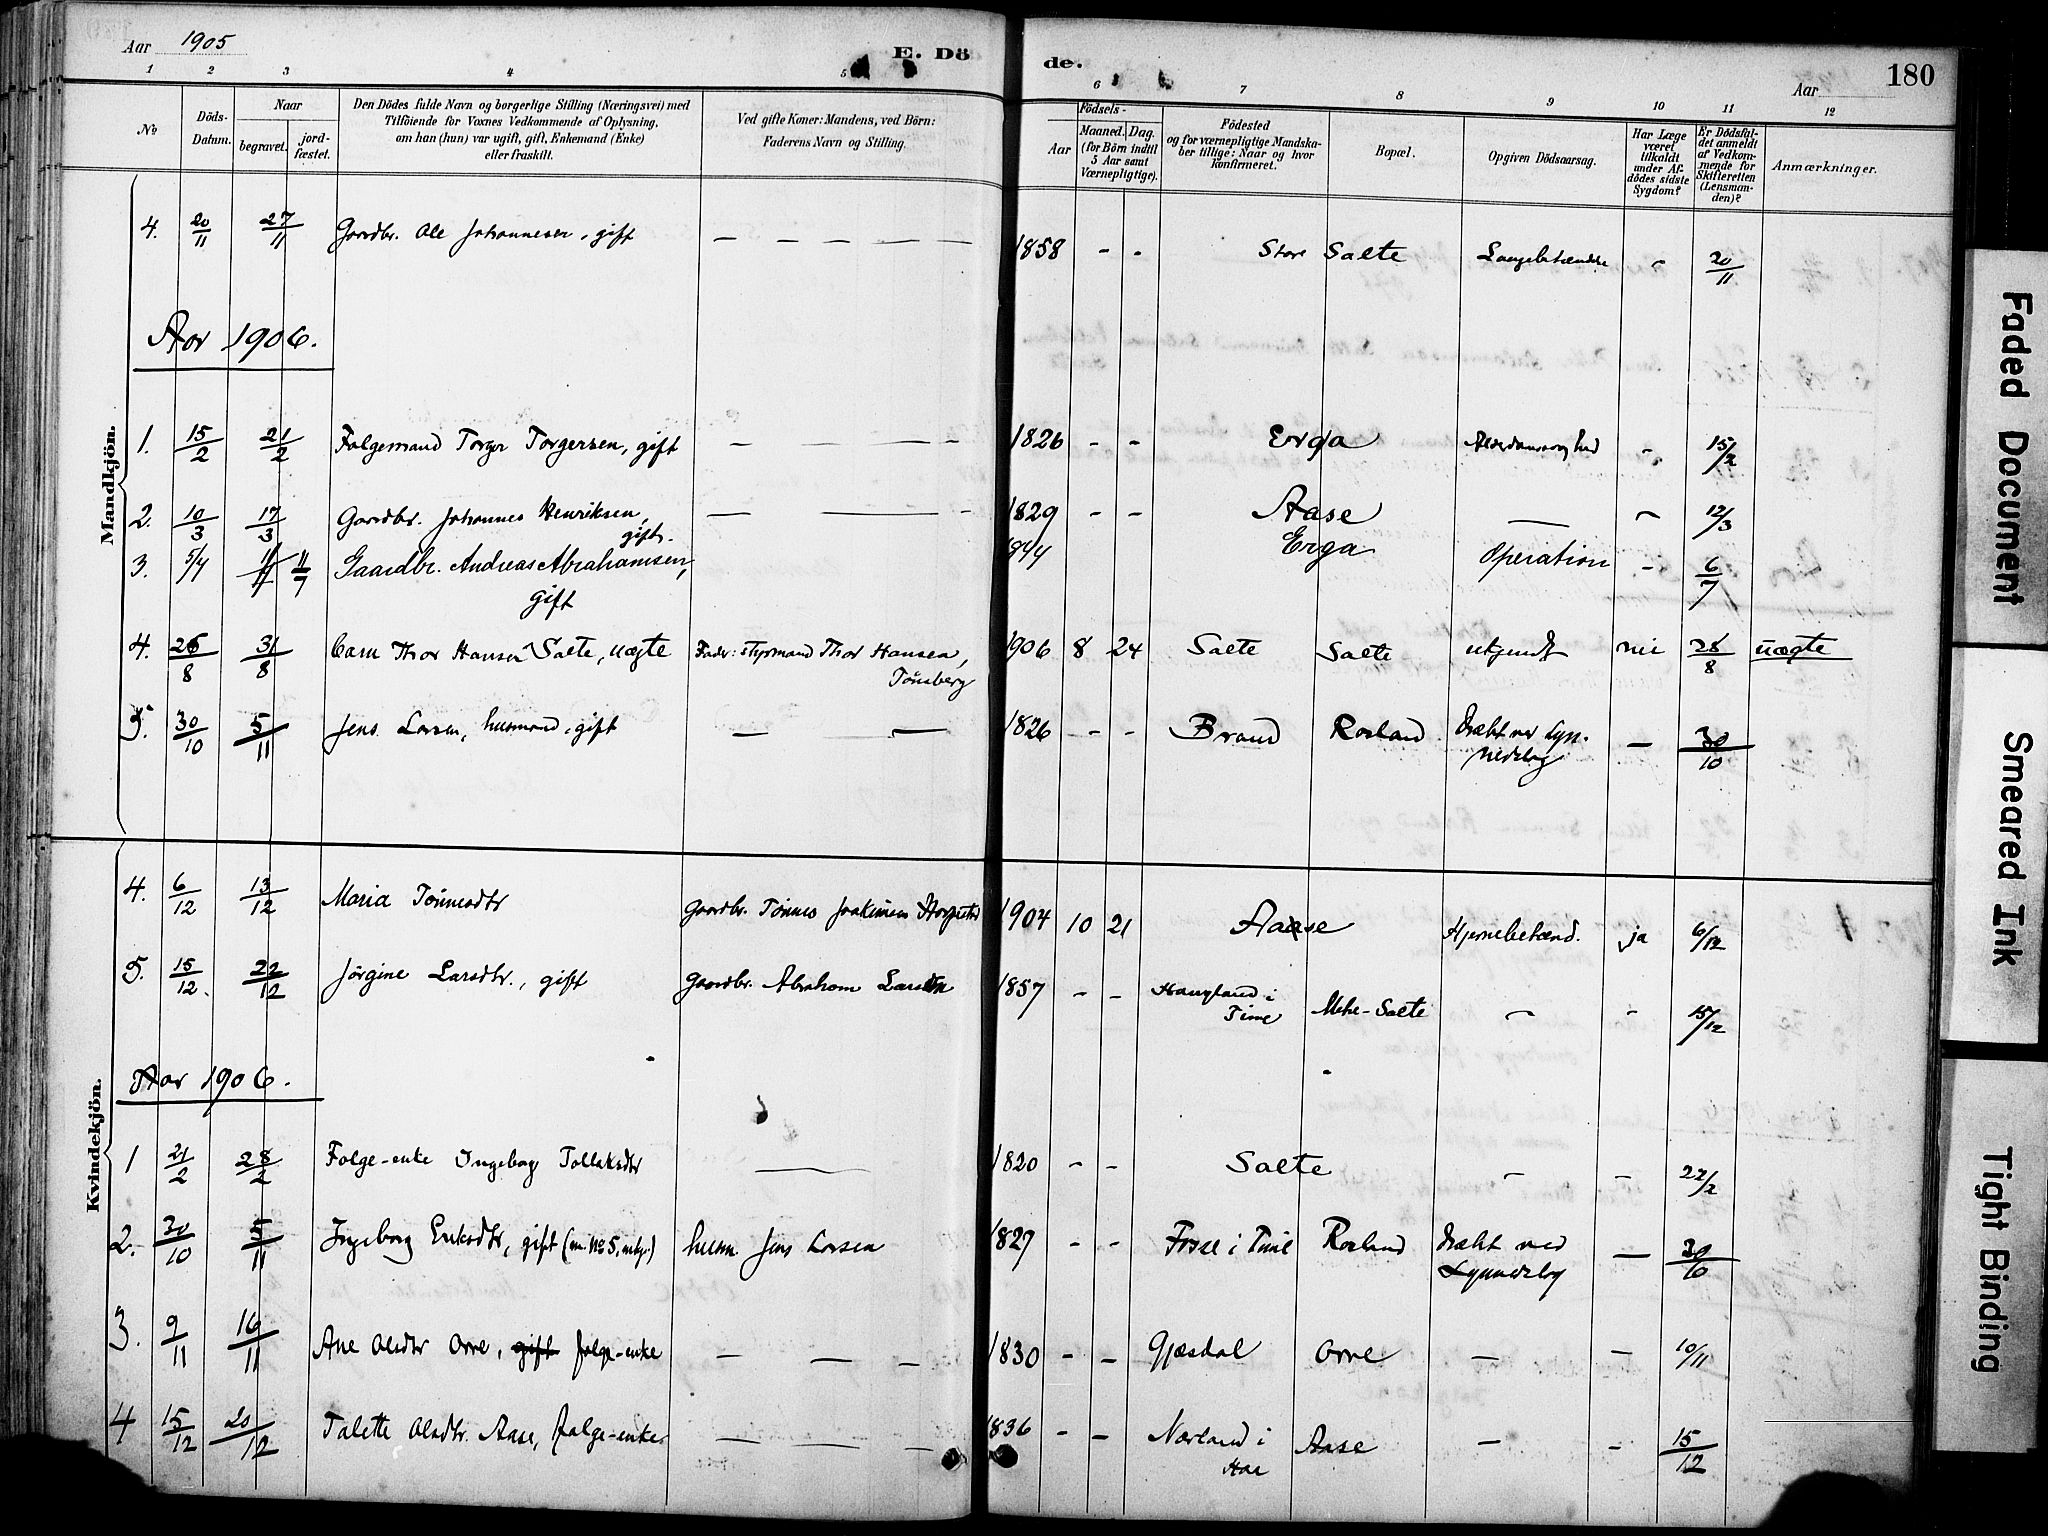 Aar 1905
E. Dö
de.
Aar
180
1 2 3 4 5
6 7 8 9 10 11 12
No
Döds-Datum.
Naar
begravet.
jord-fæstet.
Den Dödes fulde Navn og borgerlige Stilling (Næringsvei) med
Tilföiende for Voxnes Vedkommende af Oplysning,
om han (hun) var ugift, gift, Enkemand (Enke)
eller fraskilt.
Ved gifte Koner: Mandens, ved Börn:
Faderens Navn og Stilling.
Födsels-
Aar
Maaned. Dag.
(for Börn indtil
5 Aar samt
Værnepligtige).
Födested
og for værnepligtige Mandska-
ber tillige: Naar og hvor
konfirmeret.
Bopæl.
Opgiven Dödsaarsag.
Har Læge
været
tilkaldt
under Af-
dödes sidste
Sygdom?
Er Dödsfal-
det anmeldt
af Vedkom-
mende for
Skifteretten
(Lensman-
den)?
Anmærkninger.
Mandkjön.
4. 20/11 27/11 Gaardbr. Ole Johannesen, gift — — — — — 1858 - - Store Salte Lungebetændelse - 20/11
Aar 1906.
1. 15/2 21/2 Folgemand Torger Torgersen, gift — — — 1826 - - Erga Alderdomssvaghed - 15/2
2. 10/3 17/3 Gaardbr. Johannes Henriksen, gift. — — - 1829 - - Aase — - 12/3
3. 5/7 11/7 Gaardbr. Andreas Abrahamsen, gift 1844 Erga Operation - 6/7
4. 26/8 31/8 Barn Thor Hansen Salte, uægte Fader: Styrmand Thor Hansen, Tönsberg 1906 8 24 Salte Salte ukjendt nei 28/8 uægte
5. 30/10 5/11 Jens Larsen, husmand, gift — — 1826 - - Braud Rosland Dræbt ved Lyn-nedslag — 30/10
Kvindekjön.
4. 6/12 13/12 Maria Tönnesdtr Gaardbr. Tönnes Joakimsen 1904 10 21 Aase Hjernebetænd. ja 6/12
5. 15/12 22/12 Jörgine Larsdtr., gift Gaardbr. Abraham Larsen 1857 - - Haugland i Time Salte - - 15/12
Aar 1906.
1 21/2 28/2 Folge-enke Ingeborg Tollaksdtr — 1820 - - Salte - - 22/2
2. 30/10 5/11 Ingeborg Eriksdtr, gift (m. No 5, mkj.) husm. Jens Larsen 1827 - - Fosse i Time Rosland Dræbt ved Lynnedslag — 30/10
3. 9/11 16/11 Ane Olsdtr Orre, gift folge-enke — — - 1830 - - Gjæsdal Orre — - 10/11
4 15/12 20/12 Talette Olsdtr. Aase, folge-enke — — - 1836 - - Nærland i Haa Aase — - 15/12
Faded Document
Smeared Ink
Tight Binding